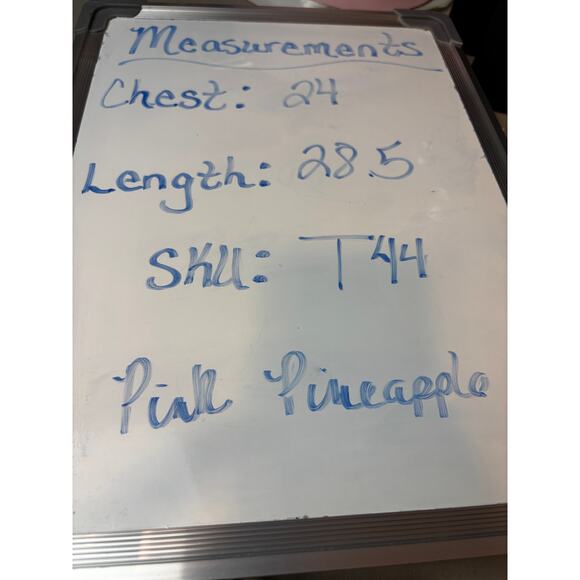 Measurements
Chest: 24
Length: 28.5
SKU: T44
Pink Pineapple